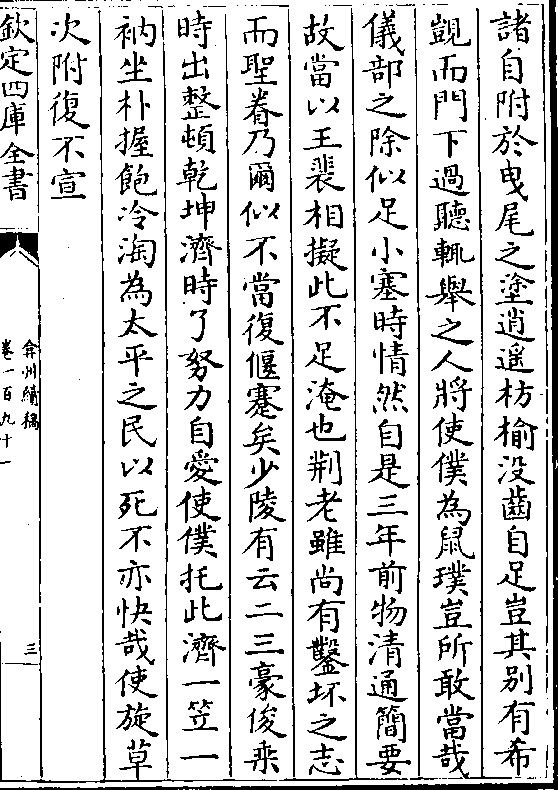 諸自附於曳尾之塗逍遥枋榆没齒自足豈其别有希
覬而門下過聽輒舉之人將使僕為鼠璞豈所敢當哉
儀部之除似足小塞時情然自是三年前物清通簡要
故當以王裴相擬此不足淹也荆老雖尚有鑿坏之志
而聖眷乃爾似不當復偃蹇矣少陵有云二三豪俊乗
時出整頓乾坤濟時了努力自愛使僕托此濟一笠一
衲坐朴握飽冷淘為太平之民以死不亦快哉使旋草
次附復不宣
欽定四庫全書
弇州續稿
卷一百九十一
三